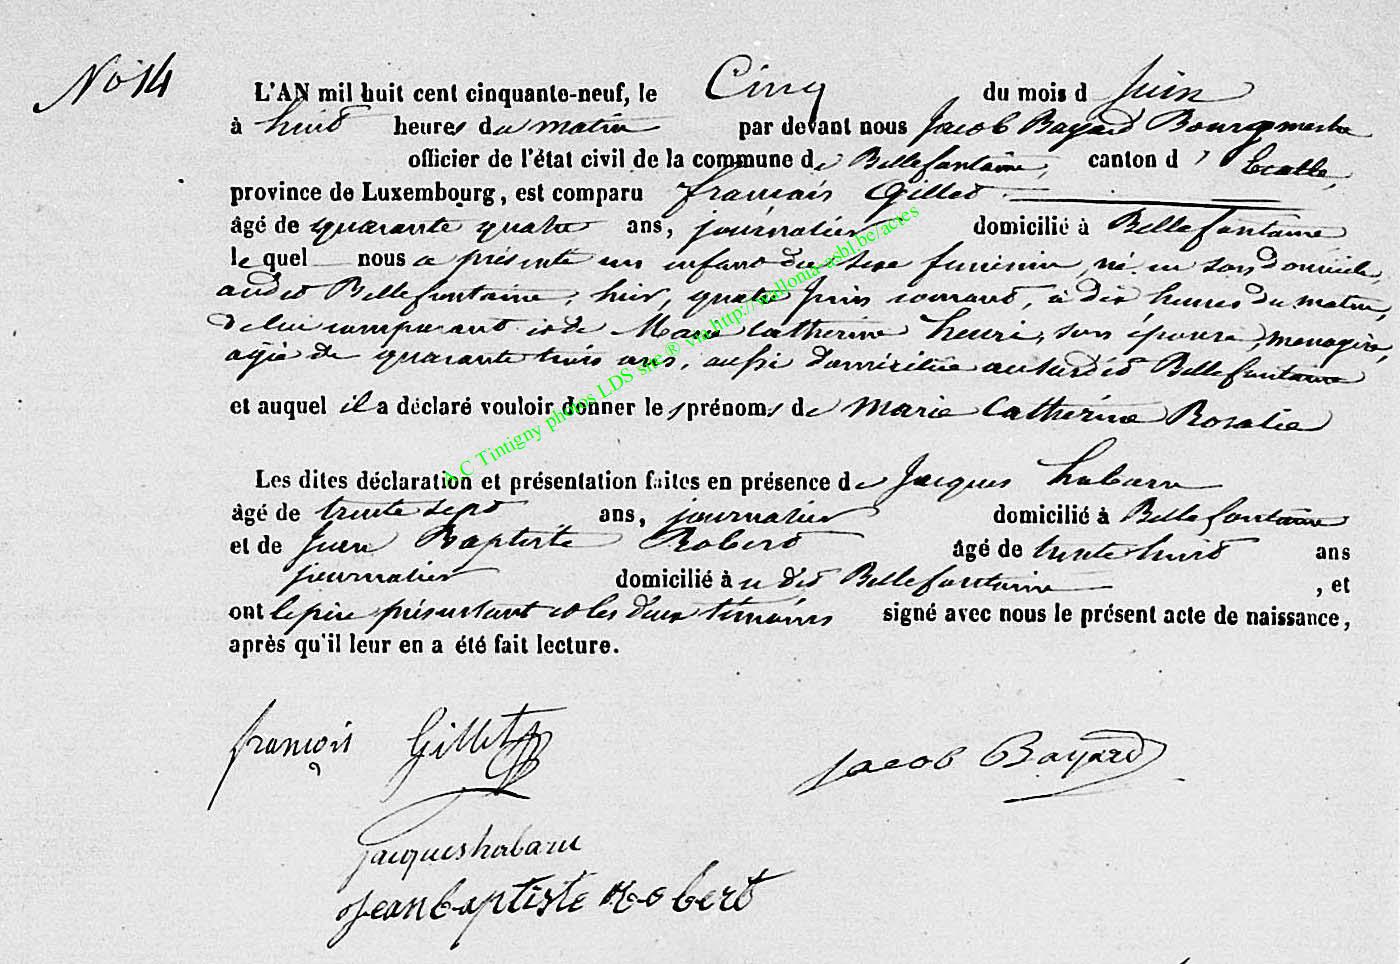 No 14
L'AN mil huit cent cinquante-neuf, le Cinq du mois d Juin
à huit heures du matin par devant nous Jacob Bayard Bourgmestre
officier de l'état civil de la commune de Bellefontaine, canton d' Etalle,
province de Luxembourg, est comparu françois Gillet
âgé de quarante quatre ans, journalier domicilié à Bellefontaine
le quel nous a présenté un enfant du sexe feminin, né en son domicile,
audit Bellefontaine, hier, quatre Juin courant, à dix heures du matin,
de lui comparant et de Marie Catherine henri, son épouse, menagère,
agée de quarante trois ans, aussi domiciliée au susdit Bellefontaine
et auquel il a déclaré vouloir donner les prénoms de Marie Catherine Rosalie
Les dites déclaration et présentation faites en présence de Jacques habaru
âgé de trente sept ans, journalier domicilié à Bellefontaine
et de Jean Baptiste Robert âgé de trente huit ans
journalier domicilié à u dit Bellefontaine, et
ont le père présentant et les deux témoins signé avec nous le présent acte de naissance,
après qu'il leur en a été fait lecture.
françois Gillet
Jacob Bayard
jacques habaru
Jean baptiste Robert
A.C Tintigny photos LDS site ® via http://wallonia-asbl.be/actes